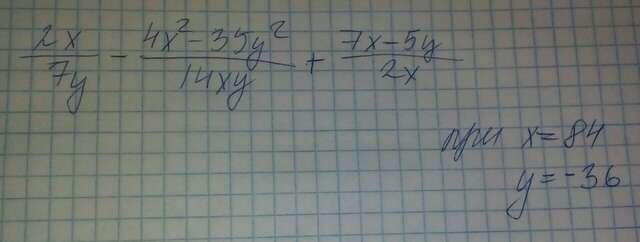 2x/7y - (4x² - 35y²)/14xy + (7x - 5y)/2x
при x = 84
y = -36